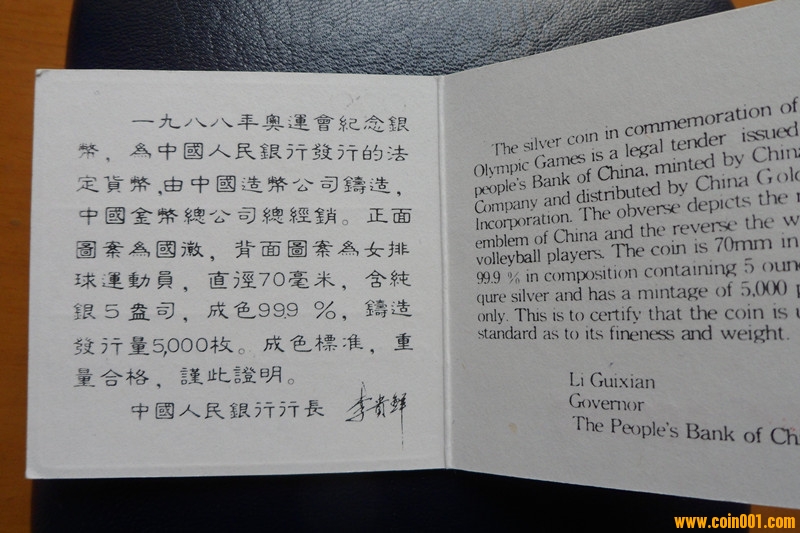 一九八八年奧運會紀念銀
幣，為中國人民銀行發行的法
定貨幣，由中國造幣公司鑄造，
中國金幣總公司總經銷。正面
圖案為國徽，背面圖案為女排
球運動員，直徑70毫米，含純
銀5盎司，成色99.9 %，鑄造
發行量5,000枚。成色標准，重
量合格，謹此證明。
中國人民銀行行長 李貴鮮
The silver coin in commemoration of
Olympic Games is a legal tender issued
people's Bank of China, minted by China
Company and distributed by China Gold
Incorporation. The obverse depicts the
emblem of China and the reverse the
volleyball players. The coin is 70mm in
99.9 % in composition containing 5
qure silver and has a mintage of 5,000
only. This is to certify that the coin is
standard as to its fineness and weight.
Li Guixian
Governor
The People's Bank of
www.coin001.com